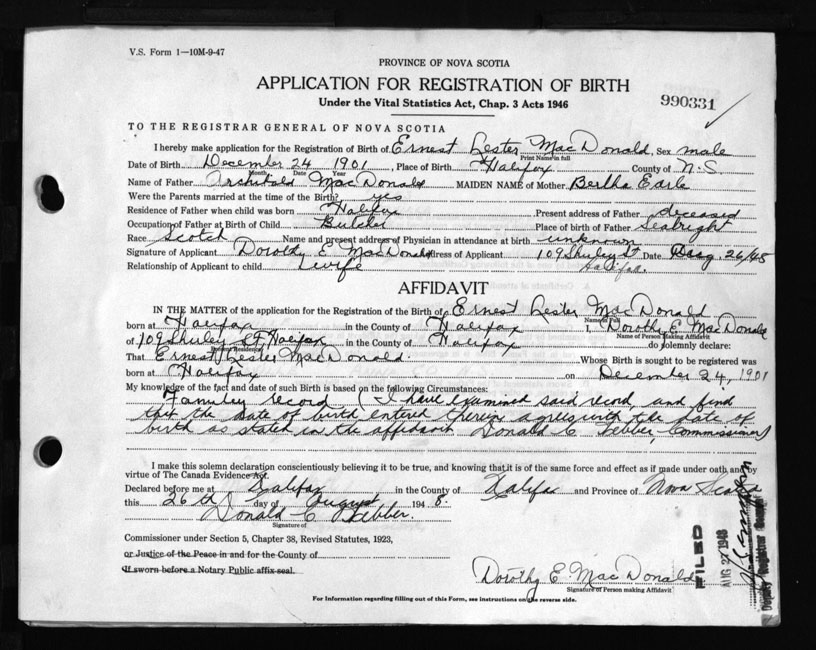 V.S. Form 1—10M-9-47
PROVINCE OF NOVA SCOTIA
APPLICATION FOR REGISTRATION OF BIRTH
Under the Vital Statistics Act, Chap. 3 Acts 1946
990331
TO THE REGISTRAR GENERAL OF NOVA SCOTIA
I hereby make application for the Registration of Birth of Ernest Lester MacDonald, Sex male
Print Name in full
Date of Birth December 24 1901, Place of Birth Halifax County of N.S.
Month Date Year
Name of Father Archibald MacDonald MAIDEN NAME of Mother Bertha Earle
Were the Parents married at time of the Birth? yes
Residence of Father when child was born Halifax Present address of Father deceased
Occupation of Father at Birth of Child Butcher Place of birth of Father Seabright
Race Scotch Name and present address of Physician in attendance at birth unknown
Signature of Applicant Dorothy E MacDonald Address of Applicant 109 Shirley St Date Aug. 26/48
Halifax.
Relationship of Applicant to child wife
AFFIDAVIT
IN THE MATTER of the application for the Registration of the Birth of Ernest Lester MacDonald
Name in Full
born at Halifax in the County of Halifax I, Dorothy E. MacDonald
Name of Person Making Affidavit
of 109 Shirley St Halifax in the County of Halifax do solemnly declare:
That Ernest Lester MacDonald. Whose Birth is sought to be registered was
born at Halifax on December 24, 1901
My knowledge of the fact and date of such Birth is based on the following Circumstances:
Family record (I have examined said record and find
that the date of birth entered therein agrees with the date of
birth as stated in the affidavit Donald C Webber, Commissioner)
I make this solemn declaration conscientiously believing it to be true, and knowing that it is of the same force and effect as if made under oath and by
virtue of The Canada Evidence Act.
Declared before me at Halifax in the County of Halifax and Province of Nova Scotia
this 26th day of August 1948.
Donald C Webber.
Signature of
Commissioner under Section 5, Chapter 38, Revised Statutes, 1923,
or Justice of the Peace in and for the County of
If sworn before a Notary Public affix seal.
Dorothy E. MacDonald
Signature of Person making Affidavit
FILED
AUG 27 1948
Deputy Registrar General
For Information regarding filling out of this Form, see instructions on the reverse side.